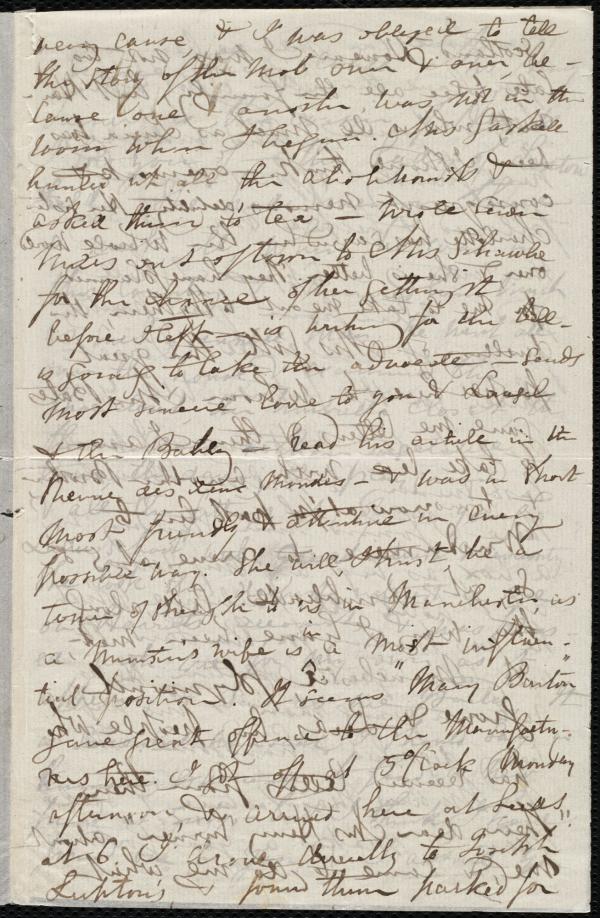 very cause, & I was obliged to tell
the story of the mob over & over, be-
cause one & another was not in the
room when I began. Mrs Gaskell
hunted up all the abolitionists &
asked them to tea — wrote even
notes out of town to Mrs
for the chance of her getting it
before I left — is writing for the Bell —
is going to take the advocate — sends
most sincere love to you &
& the Baby — read his article in the
Revue des deux Mondes — & was in short
most friendly & attentive in every
possible way. She will, I trust, be a
tower of strength in Manchester, as
a Ministers wife is in a most influen-
tial position. It seems "Mary Barton"
gave great offence to the Manufactu-
rers here. I got off at 5 oClock Monday
afternoon, & arrived here at Leeds,
at 6. I drove directly to Joseph
Lupton's, & found them packed for